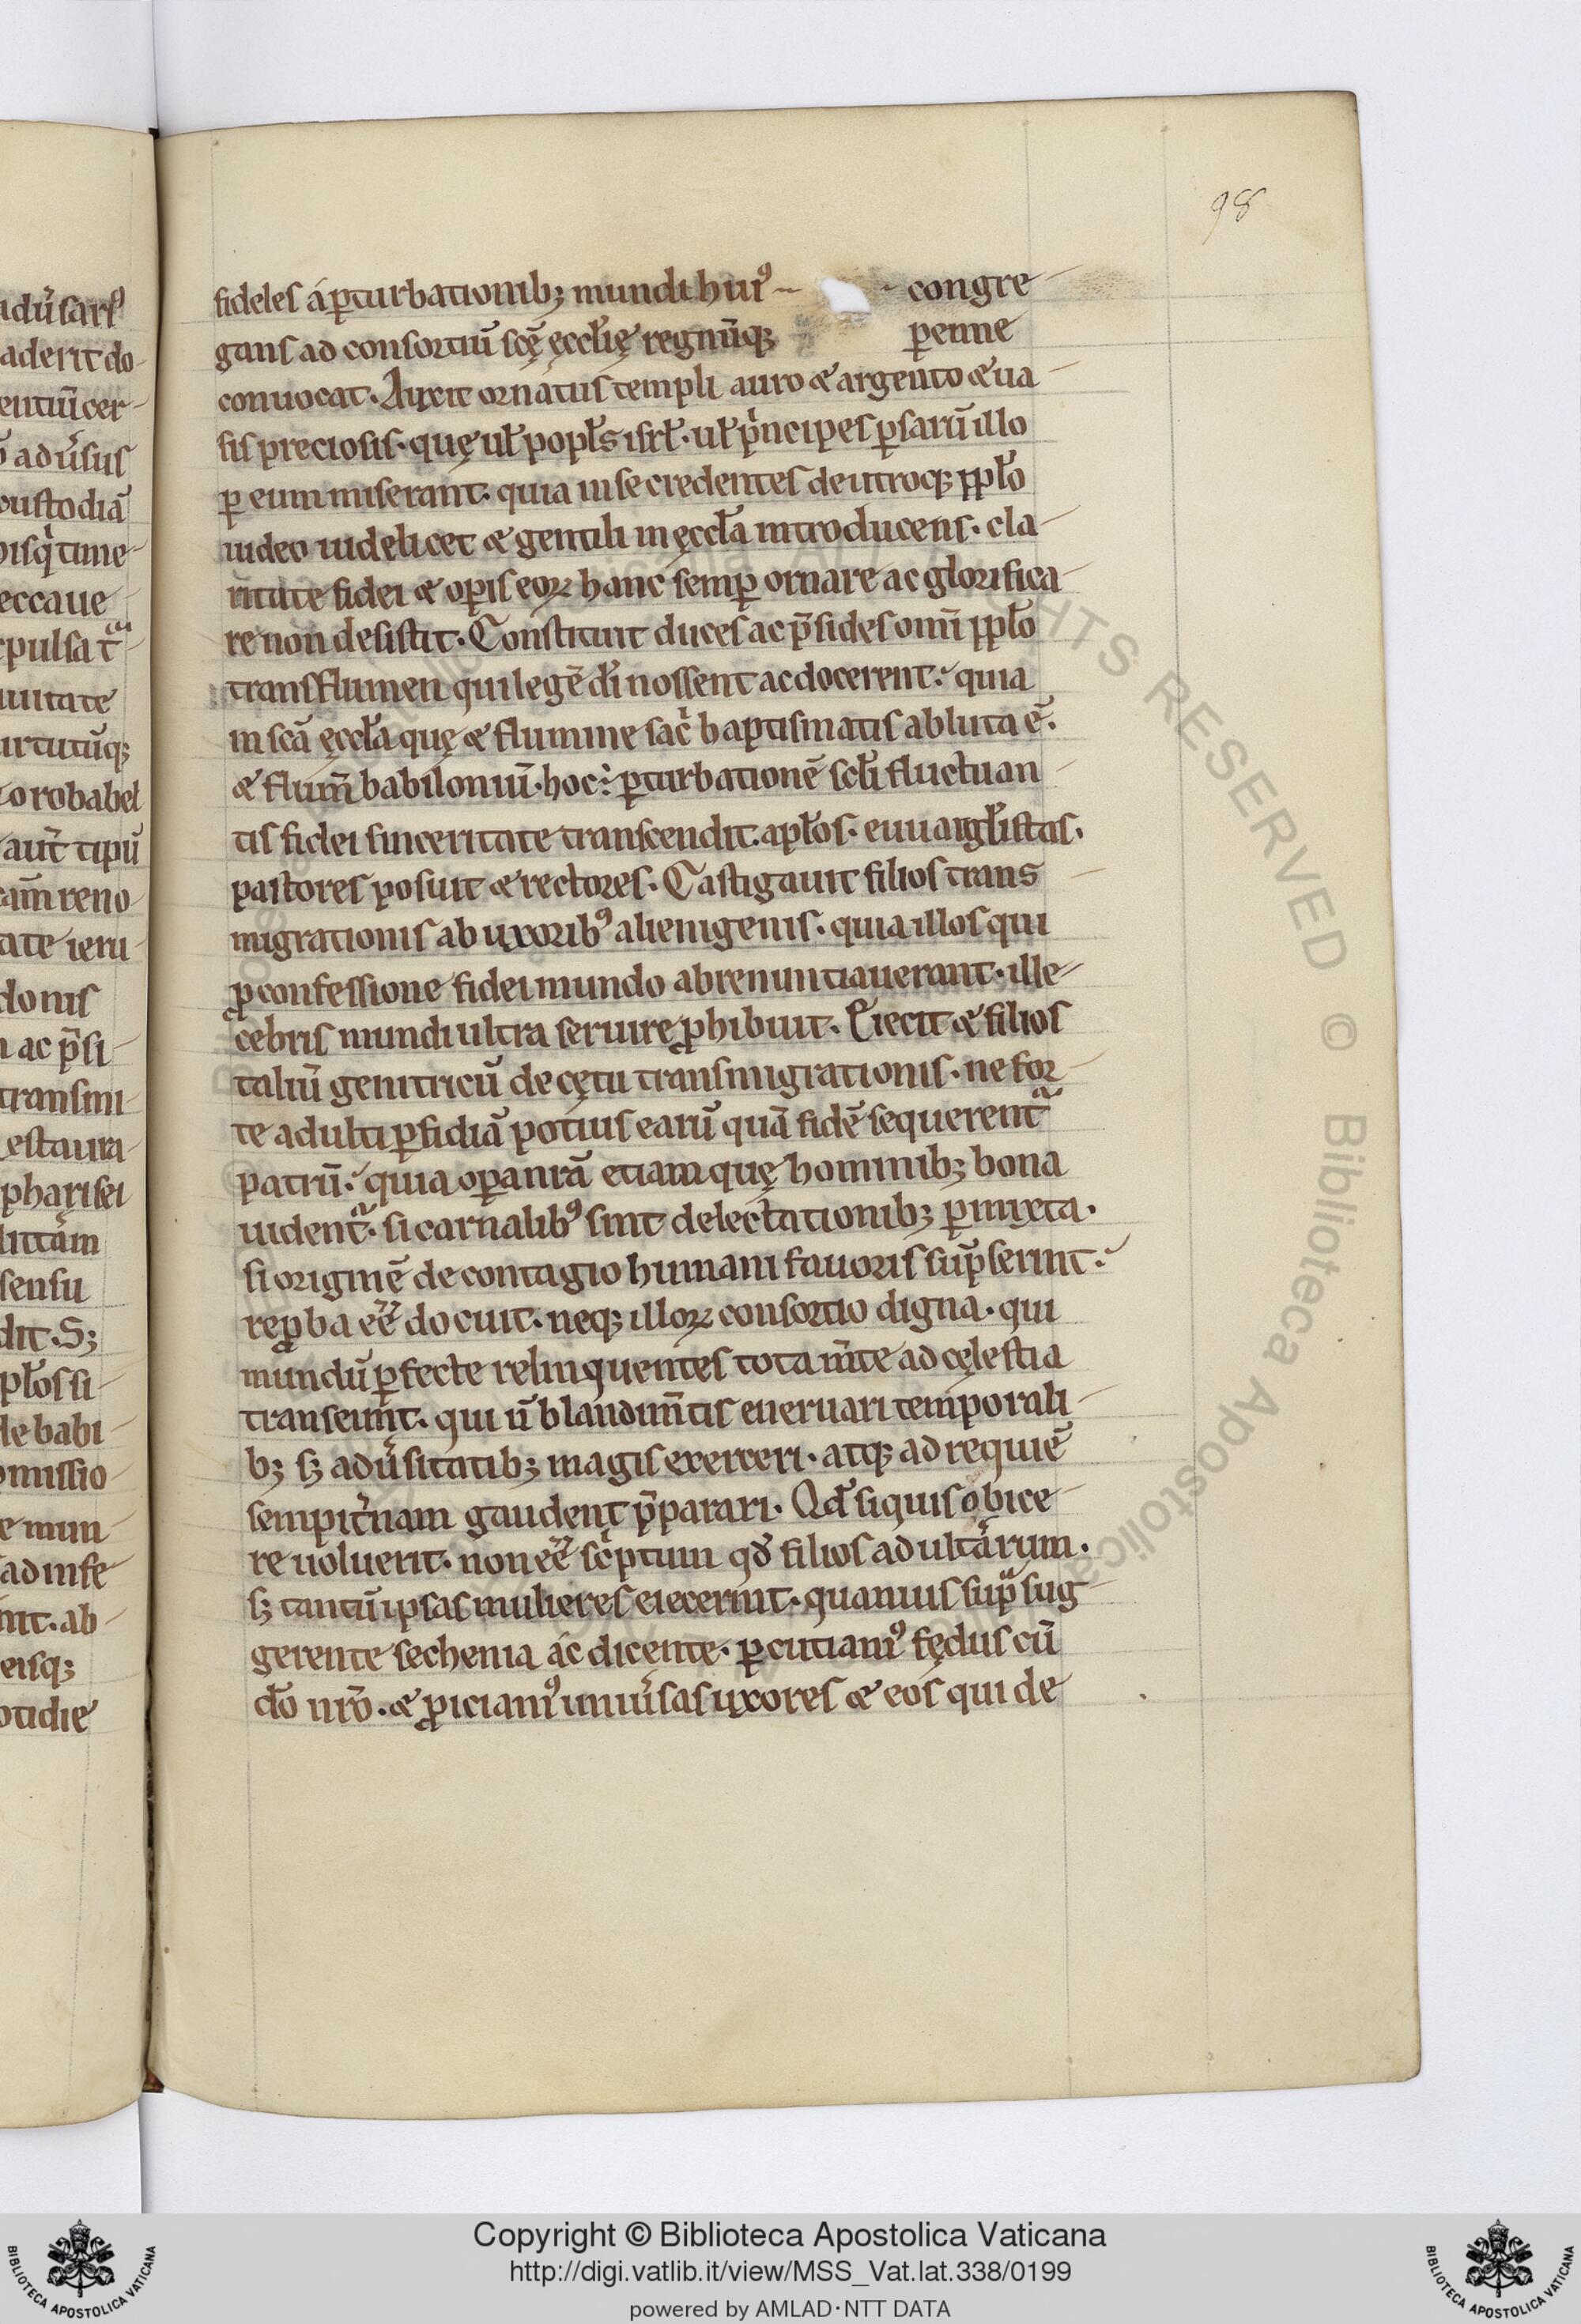 98
fideles a ꝑturbationib; mundi hui᷒ congre
gans ad consortiū scę̄ ęccłię regnūq; ꝑenne
conuocat. Auxit ornatus templi auro & argento & ua
sis preciosis. quę uł popłs isrł. uł pͥncipes ꝑsarū illo
ꝑ eum miserant. quia in se credentes de utroq; ppło
iudeo uidelicet & gentili in ęccła introducens. cla
ritate fidei & oꝑis eoꝝ hanc semꝑ ornare ac glorifica
re non desistit. Constituit duces ac p̄sides omī ppło
trans flumen qui legē dī nossent ac docerent. quia
in scā ęccła quę & flumine sacͥ baptismatis abluta ē.
& flum̄ babiloniū. hoc ÷ ꝑturbationē scłi fluctuan
tis fidei sinceritate transcendit. apłos. euuangłistas.
pastores posuit & rectores. Castigauit filios trans
migrationis ab uxorib᷒ alienigenis. quia illos qui
ꝓ confessione fidei mundo abrenuntiauerant. ille
cebris mundi ultra seruire ꝓhibuit. Eiecit & filios
taliū genitricū de cętu transmigrationis. ne for
te adulti ꝑfidiā potius earū quā fidē sequerent᷑
patrū. quia oꝑa nrā etiam quę hominib; bona
uident᷑. si carnalib᷒ sint delectationib; ꝑmixta.
si originē de contagio humani fauoris sūpserint.
reꝓba eē docuit. neq; illoꝝ consortio digna. qui
mundū ꝑfecte relinquentes tota m̄te ad cęlestia
transeunt. qui ū blandim̄tis eneruari temporali
b; s; adu̓sitatib; magis exerceri. atq; ad requiē
sempit̓nam gaudent p̄parari. Qđ siquis obice
re uoluerit. non eē scͥptum qđ filios adultarum.
s; tantū ipsas mulieres eiecerint. quamuis supͣ sug
gerente sechenia ac dicente. ꝑcutiam᷒ fędus cū
dō nrō. & ꝓiciam᷒ uniu̓sas uxores & eos qui de
Copyright © Biblioteca Apostolica Vaticana
http://digi.vatlib.it/view/MSS_Vat.lat.338/0199
powered by AMLAD·NTT DATA
BIBLIOTECA APOSTOLICA VATICANA
BIBLIOTECA APOSTOLICA VATICANA